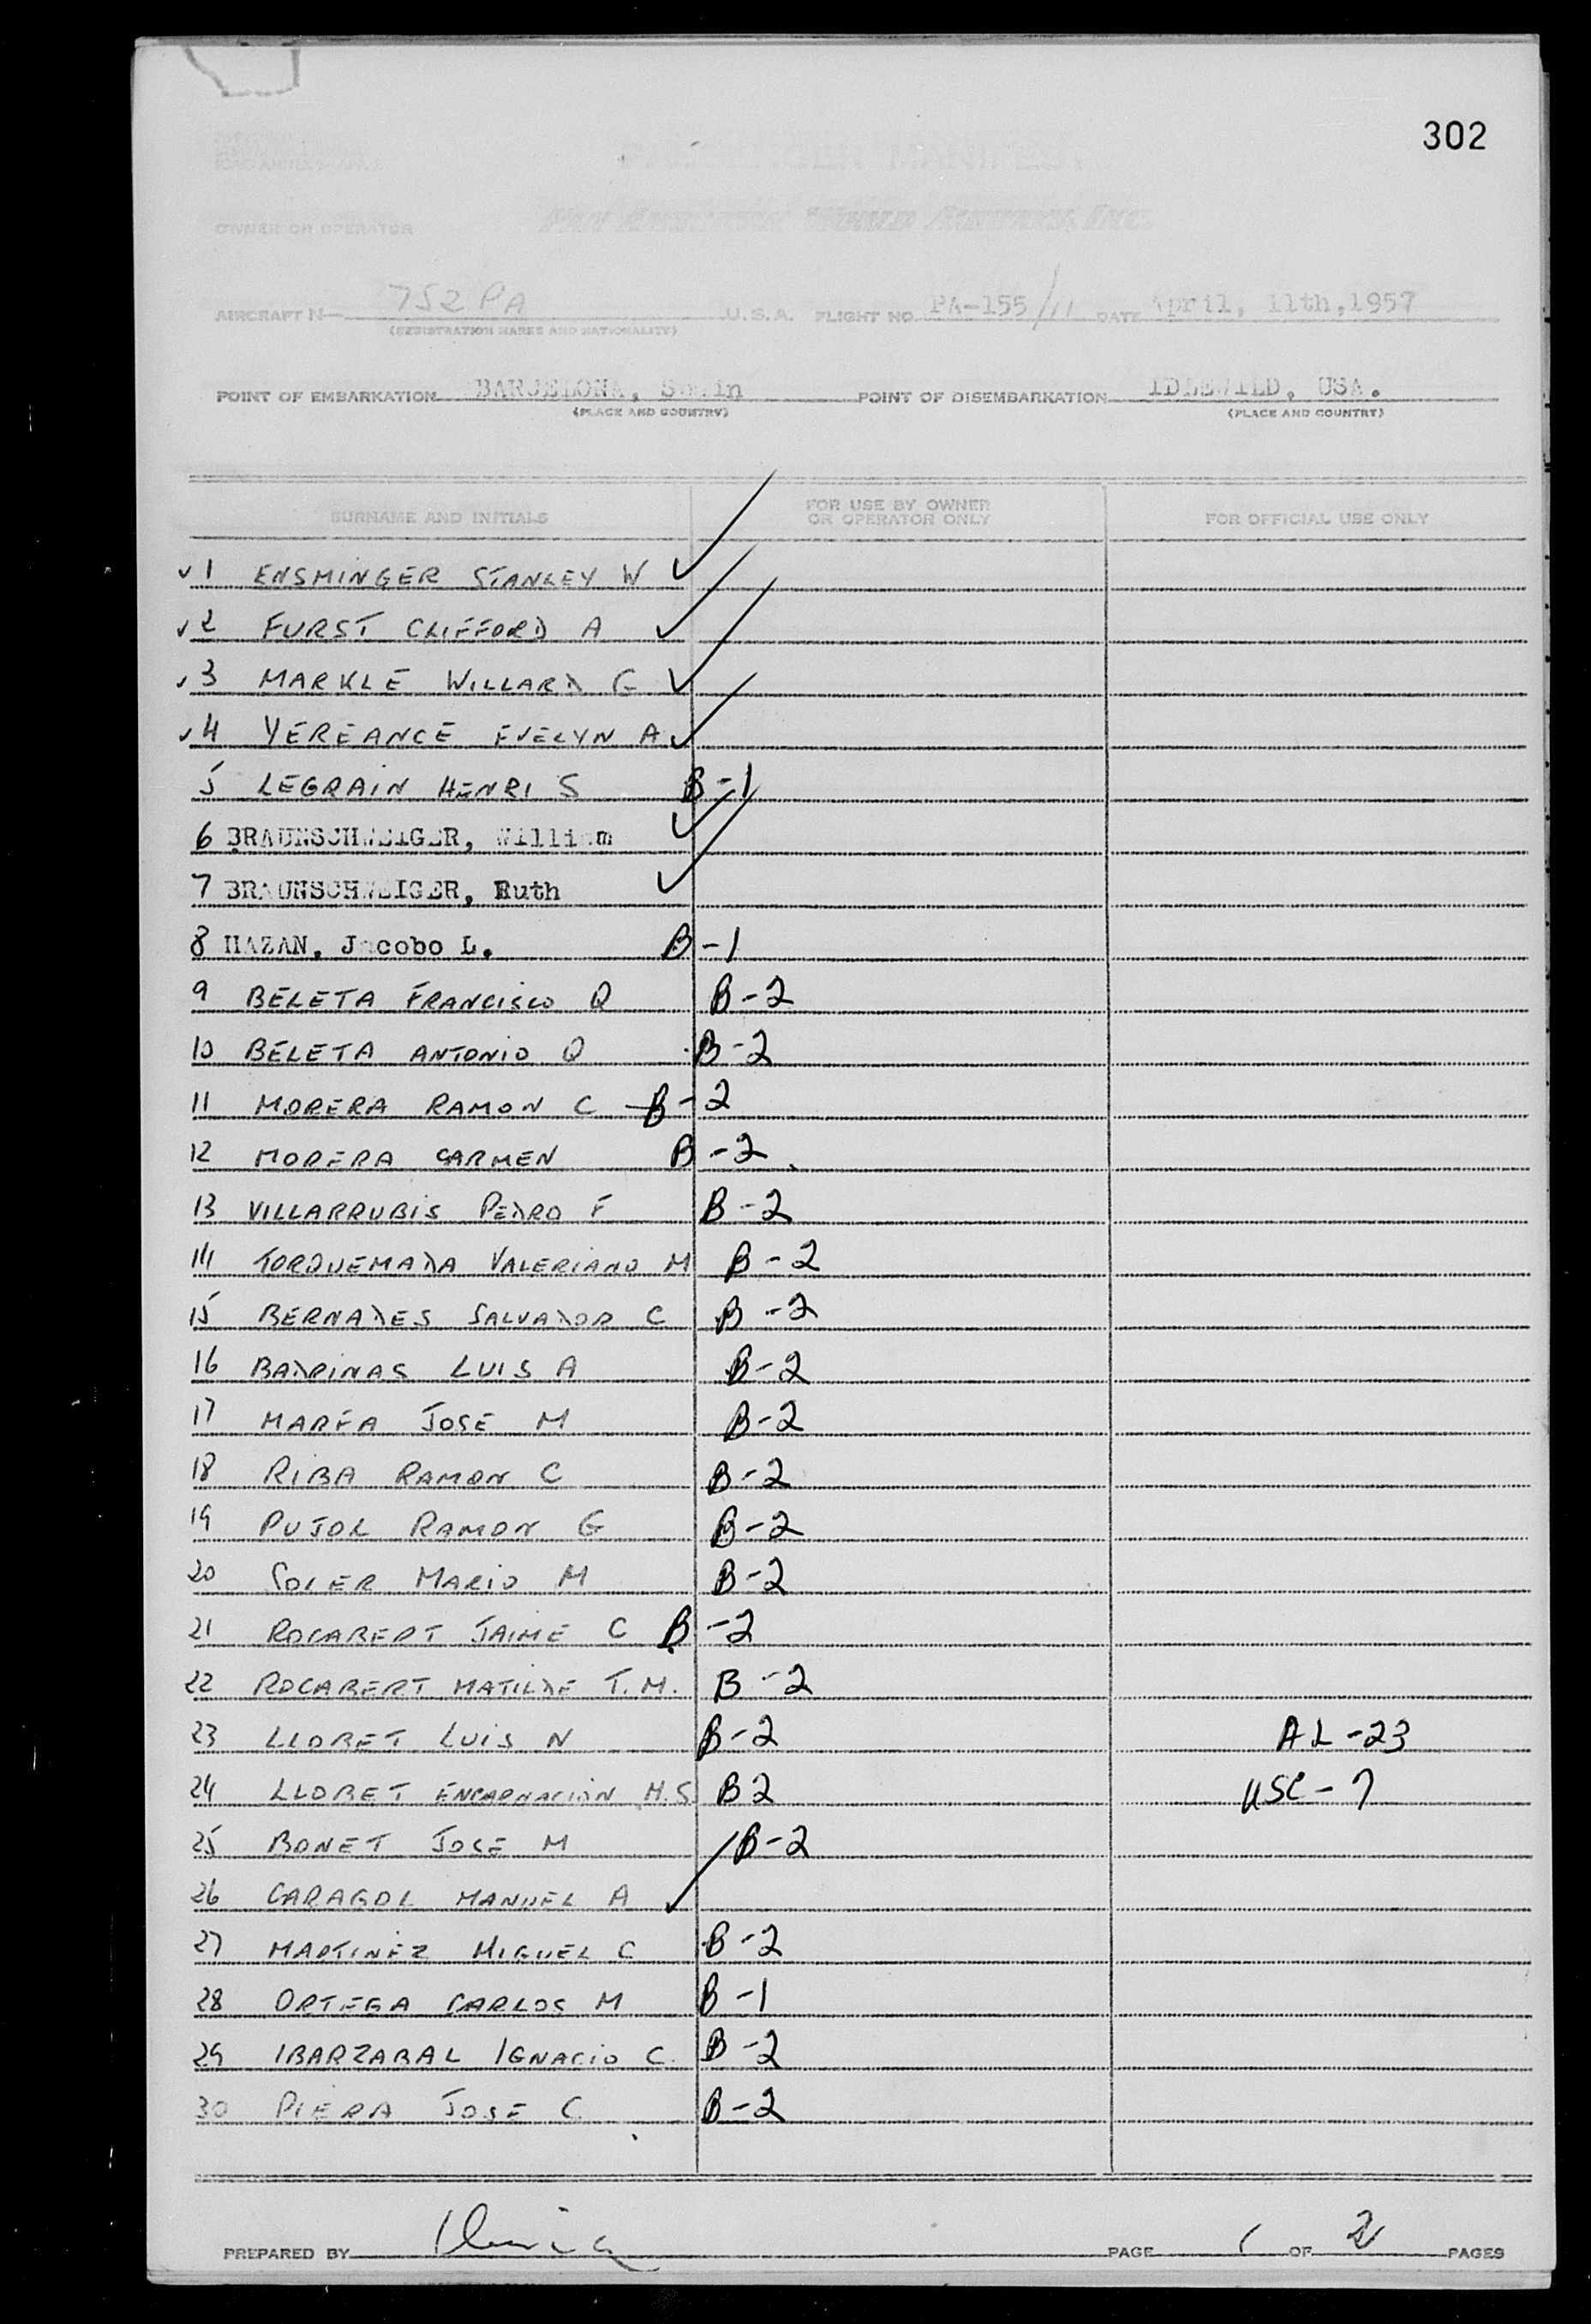 302
PASSENGER MANIFEST
Pan American World Airways, Inc.
OWNER OR OPERATOR
AIRCRAFT N— 752 PA U.S.A. FLIGHT NO. PA-155/11 DATE April, 11th, 1957
(REGISTRATION MARKS AND NATIONALITY)
POINT OF EMBARKATION BARCELONA, Spain POINT OF DISEMBARKATION IDLEWILD, USA.
(PLACE AND COUNTRY) (PLACE AND COUNTRY)
SURNAME AND INITIALS FOR USE BY OWNER OR OPERATOR ONLY FOR OFFICIAL USE ONLY
✓ 1 ENSMINGER STANLEY W ✓
✓ 2 FURST CLIFFORD A ✓
✓ 3 MARKLE WILLARD G ✓
✓ 4 YEREANCE EVELYN A ✓
5 LEGRAIN HENRI S B-1
6 BRAUNSCHWEIGER, William ✓
7 BRAUNSCHWEIGER, Ruth ✓
8 HAZAN, Jacobo L. B-1
9 BELETA FRANCISCO Q B-2
10 BELETA ANTONIO Q B-2
11 MORERA RAMON C B-2
12 MORERA CARMEN B-2
13 VILLARRUBIS PEDRO F B-2
14 TORQUEMADA VALERIANO M B-2
15 BERNADES SALVADOR C B-2
16 BADRINAS LUIS A B-2
17 MARFA JOSE M B-2
18 RIBA RAMON C B-2
19 PUJOL RAMON G B-2
20 SOLER MARIO M B-2
21 ROCABERT JAIME C B-2
22 ROCABERT MATILDE T.M. B-2
23 LLORET LUIS N B-2 AL-23
24 LLORET ENCARNACION M.S. B2 USC-7
25 BONET JOSE M B-2
26 CARAGOL MANUEL A ✓
27 MARTINEZ MIGUEL C B-2
28 ORTEGA CARLOS M B-1
29 IBARZABAL IGNACIO C. B-2
30 PIERA JOSE C B-2
PREPARED BY PAGE 1 OF 2 PAGES